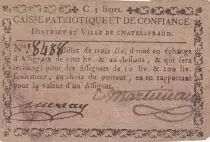 C. 3 livres.
CAISSE PATRIOTIQUE ET DE CONFIANCE.
DISTRICT ET VILLE DE CHATELLERAUD.
No. 18488 Billet de trois liv. donné en échange
d'Assignats de cent liv. & au dessous, & qui sera
reçu en échange pour des Assignats de 10 liv. & en
seulement, au choix du porteur, en en rapportant
pour la valeur d'un Assignat.
Martineau